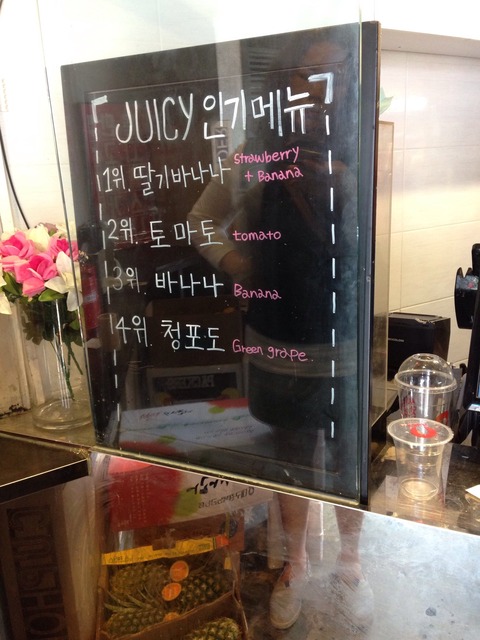 JUICY 인기메뉴
1위. 딸기바나나 Strawberry
+ Banana
2위. 토마토 tomato
3위. 바나나 Banana
4위. 청포도 Green grape.